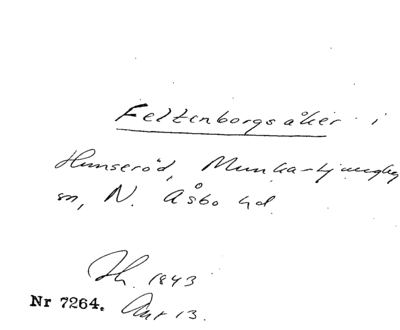 Feltenborgsåker i
Hunseröd, Munka-Ljungby
sn, N. Åsbo hd.
Jh. 1843
Nr 7264. Akt 13.